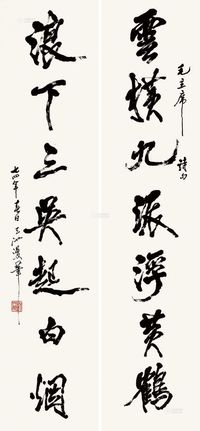 毛主席詩句
雲橫九派浮黃鶴
浪下三吳起白烟
七四年春日